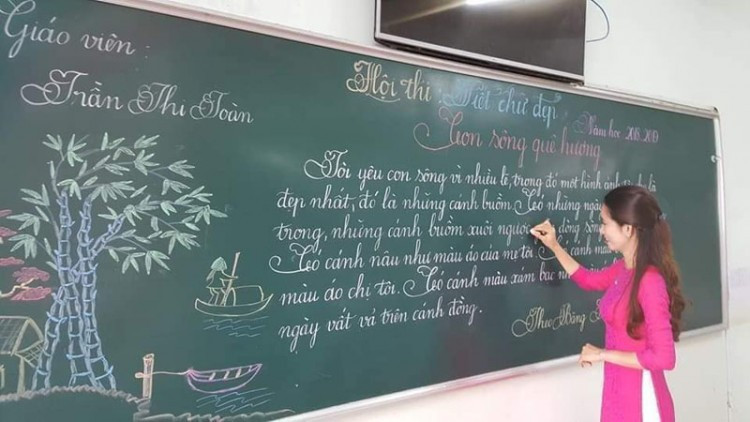 Giáo viên:
Trần Thị Toàn
Hội thi: Viết chữ đẹp
Năm học 2018-2019
Con sông quê hương
Tôi yêu con sông vì nhiều lẽ, trong đó một hình ảnh là
đẹp nhất, đó là những cánh buồm. Có những ngày
trong, những cánh buồm xuôi ngược dòng sông
Có cánh nâu như màu áo của mẹ tôi. Có cánh màu
màu áo chị tôi. Có cánh màu xám bạc
ngày vất vả trên cánh đồng.
Theo Băng